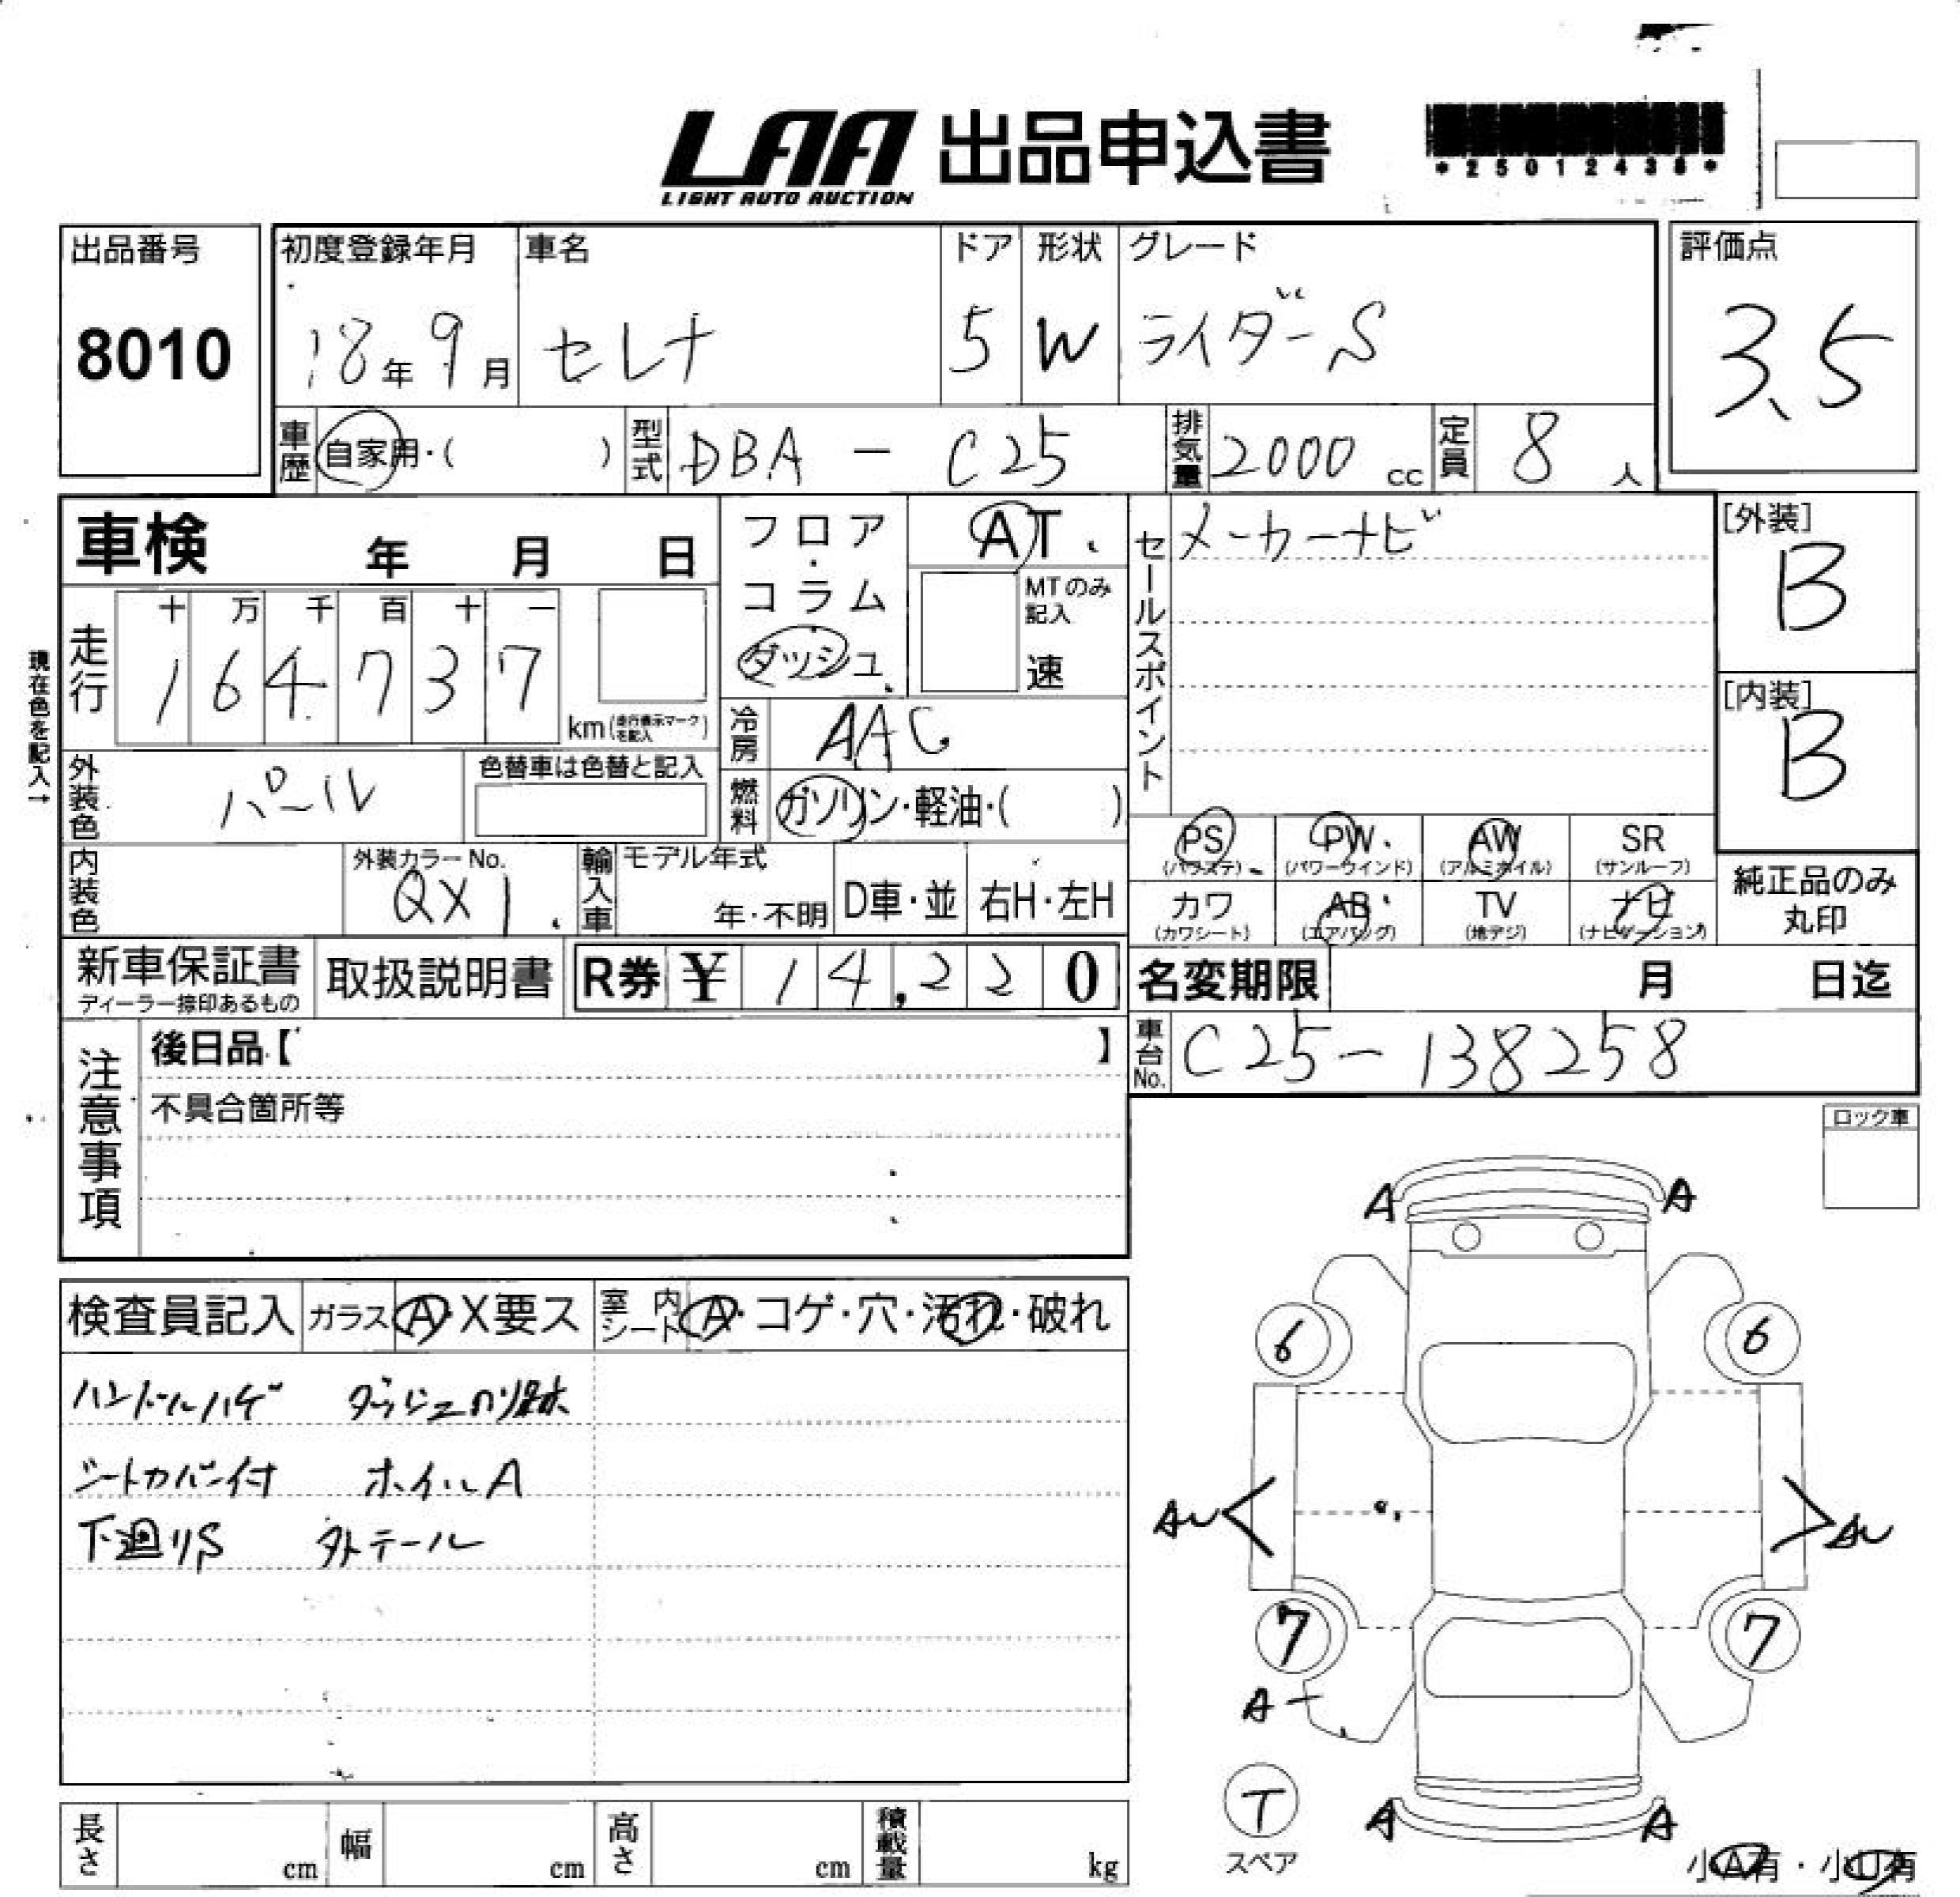 LAA 出品申込書
LIGHT AUTO AUCTION
*25012438*
出品番号
8010
初度登録年月
18年9月
車名
セレナ
ドア
5
形状
W
グレード
ライダーS
評価点
3.5
車歴
自家用・( )
型式
DBA - C25
排気量
2000 cc
定員
8 人
車検 年 月 日
現在色を記入→
走行
十 万 千 百 十 一
1 6 4 7 3 7
km(走行表示マークを記入)
フロア・コラム
ダッシュ
AT
MTのみ記入
速
冷房
AAC
燃料
ガソリン・軽油・( )
セールスポイント
メーカーナビ
[外装]
B
[内装]
B
外装色
パール
色替車は色替と記入
内装色
外装カラーNo.
QX1
輸入車
モデル年式
年・不明
D車・並
右H・左H
PS (パワステ)
PW (パワーウインド)
AW (アルミホイル)
SR (サンルーフ)
カワ (カワシート)
AB (エアバッグ)
TV (地デジ)
ナビ (ナビゲーション)
純正品のみ
丸印
新車保証書
ディーラー捺印あるもの
取扱説明書
R券 ¥ 14,220
名変期限 月 日迄
車台No.
C25-138258
注意事項
後日品【 】
不具合箇所等
ロック車
検査員記入
ガラス A・X要ス
室内シート A・コゲ・穴・汚れ・破れ
ハンドルハゲ ダッシュのり跡
シートカバー付 ホイルA
下廻りS 外テール
A A
6 6
7 7
A
T
スペア
A A
小A有・小U有
長さ cm
幅 cm
高さ cm
積載量 kg